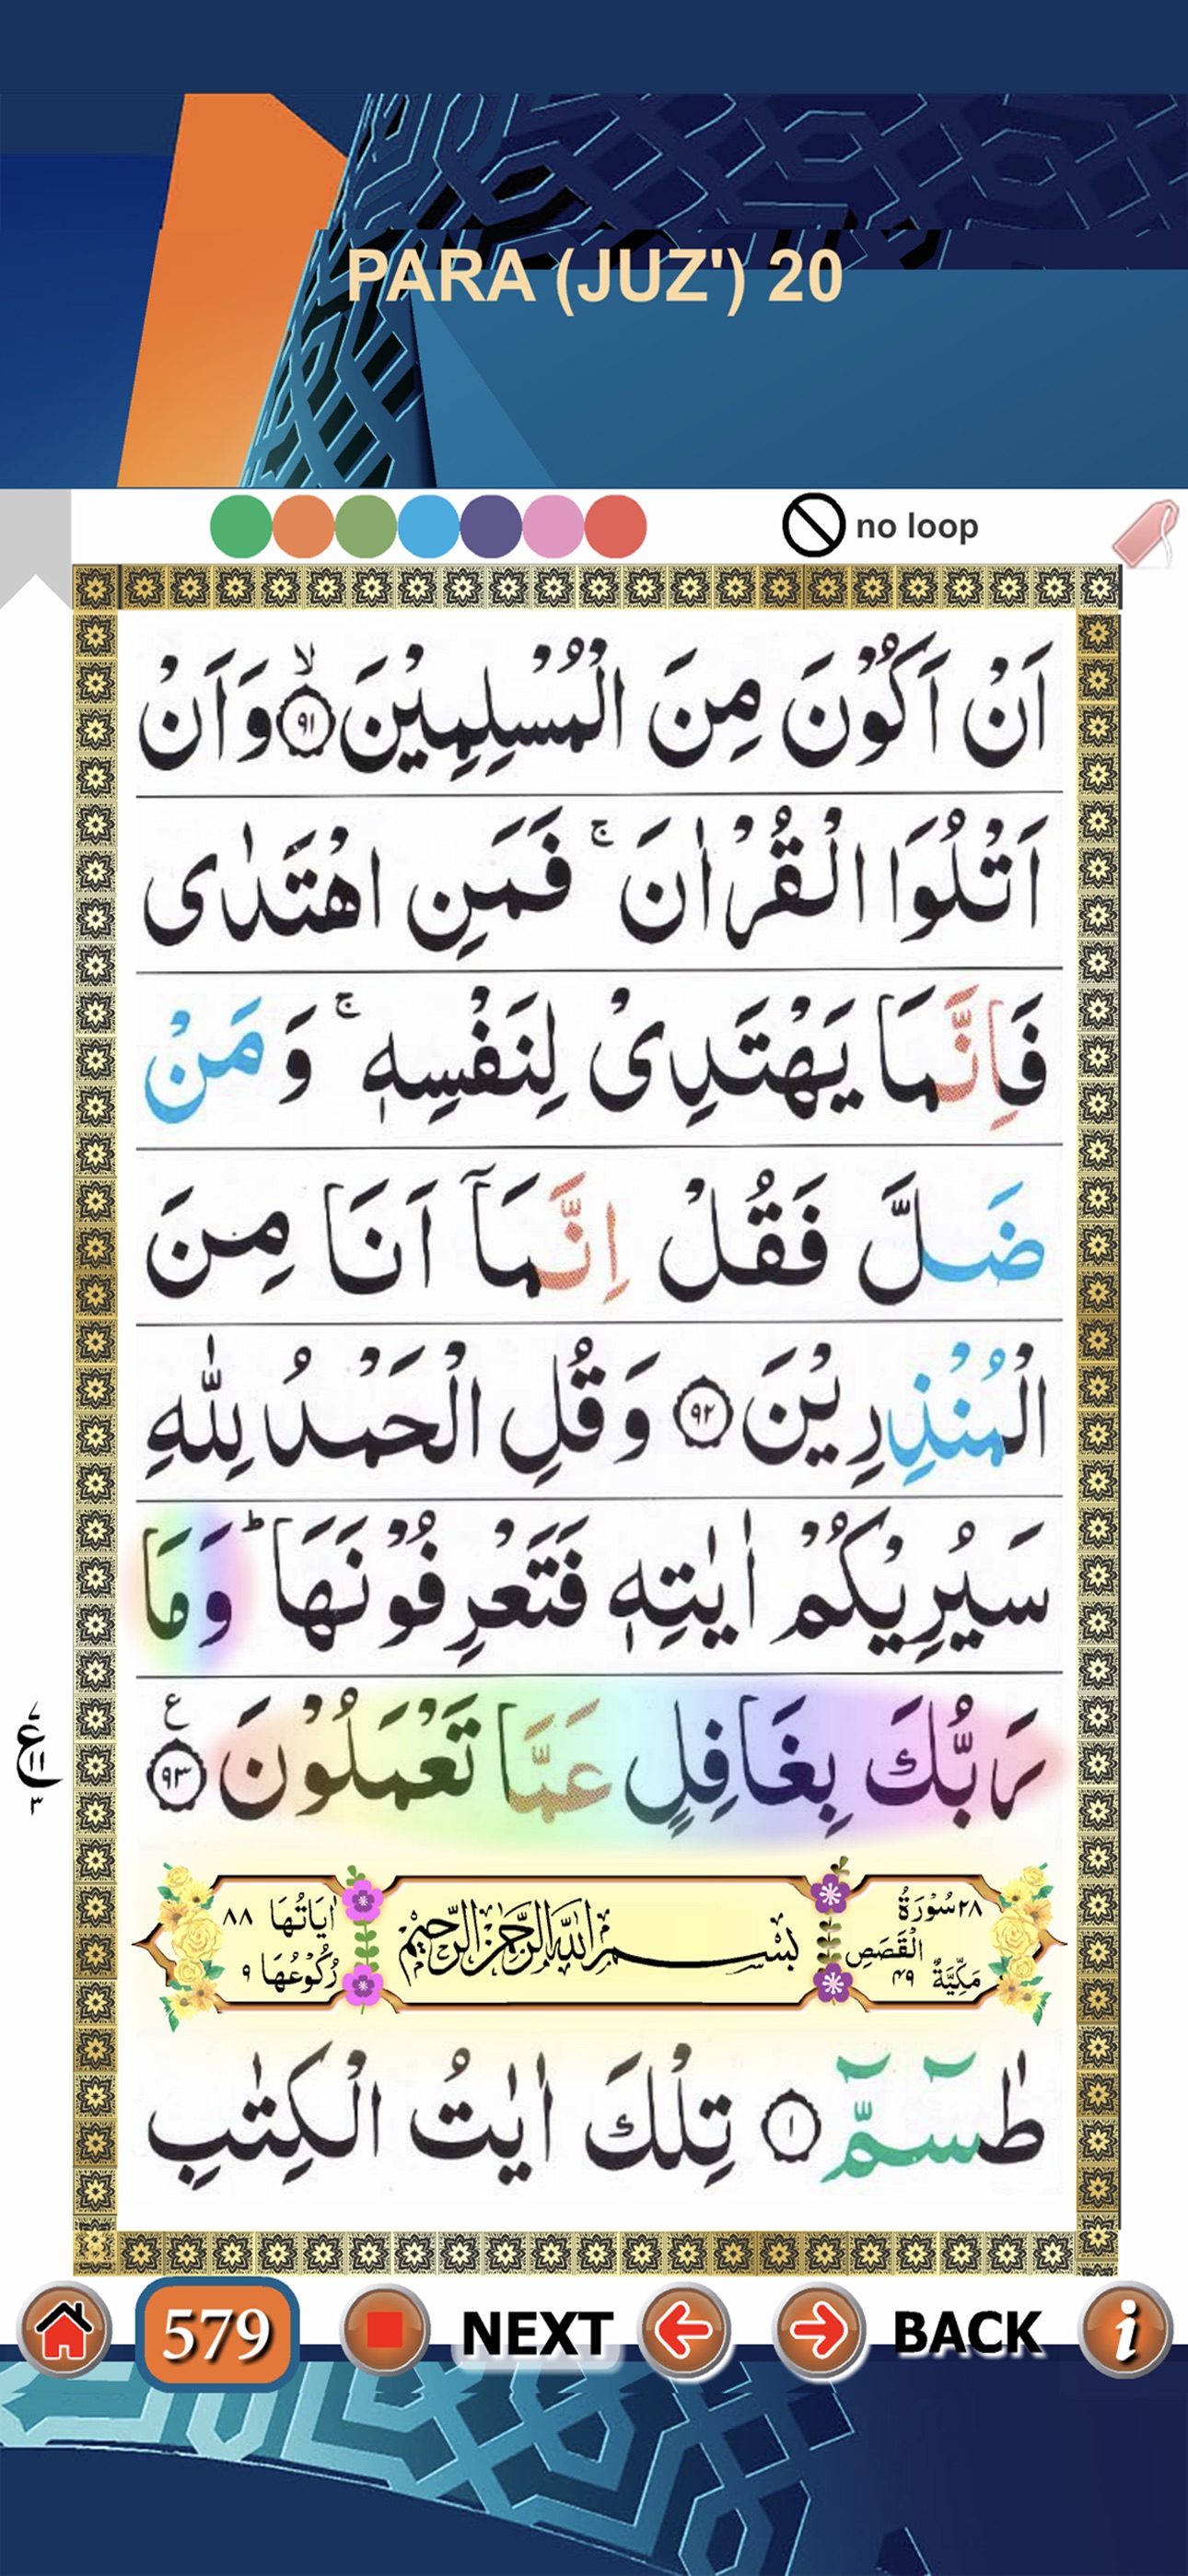 PARA (JUZ') 20
no loop
اَنْ اَكُوْنَ مِنَ الْمُسْلِمِيْنَ ۙ﴿۹۱﴾ وَاَنْ
اَتْلُوَا الْقُرْاٰنَ ۚ فَمَنِ اهْتَدٰى
فَاِنَّمَا يَهْتَدِىْ لِنَفْسِهٖ ۚ وَمَنْ
ضَلَّ فَقُلْ اِنَّمَاۤ اَنَا مِنَ
الْمُنْذِرِيْنَ ﴿۹۲﴾ وَقُلِ الْحَمْدُ لِلّٰهِ
سَيُرِيْكُمْ اٰيٰتِهٖ فَتَعْرِفُوْنَهَا ؕ وَمَا
رَبُّكَ بِغَافِلٍ عَمَّا تَعْمَلُوْنَ ﴿۹۳﴾ ع
۷ ع ۱۱ ۳
۲۸ سُوْرَةُ الْقَصَصِ مَكِّيَّةٌ ۴۹
بِسْمِ اللّٰهِ الرَّحْمٰنِ الرَّحِيْمِ
اٰيَاتُهَا ۸۸
رُكُوْعُهَا ۹
طٰسٓمّٓ ﴿۱﴾ تِلْكَ اٰيٰتُ الْكِتٰبِ
579 NEXT BACK i